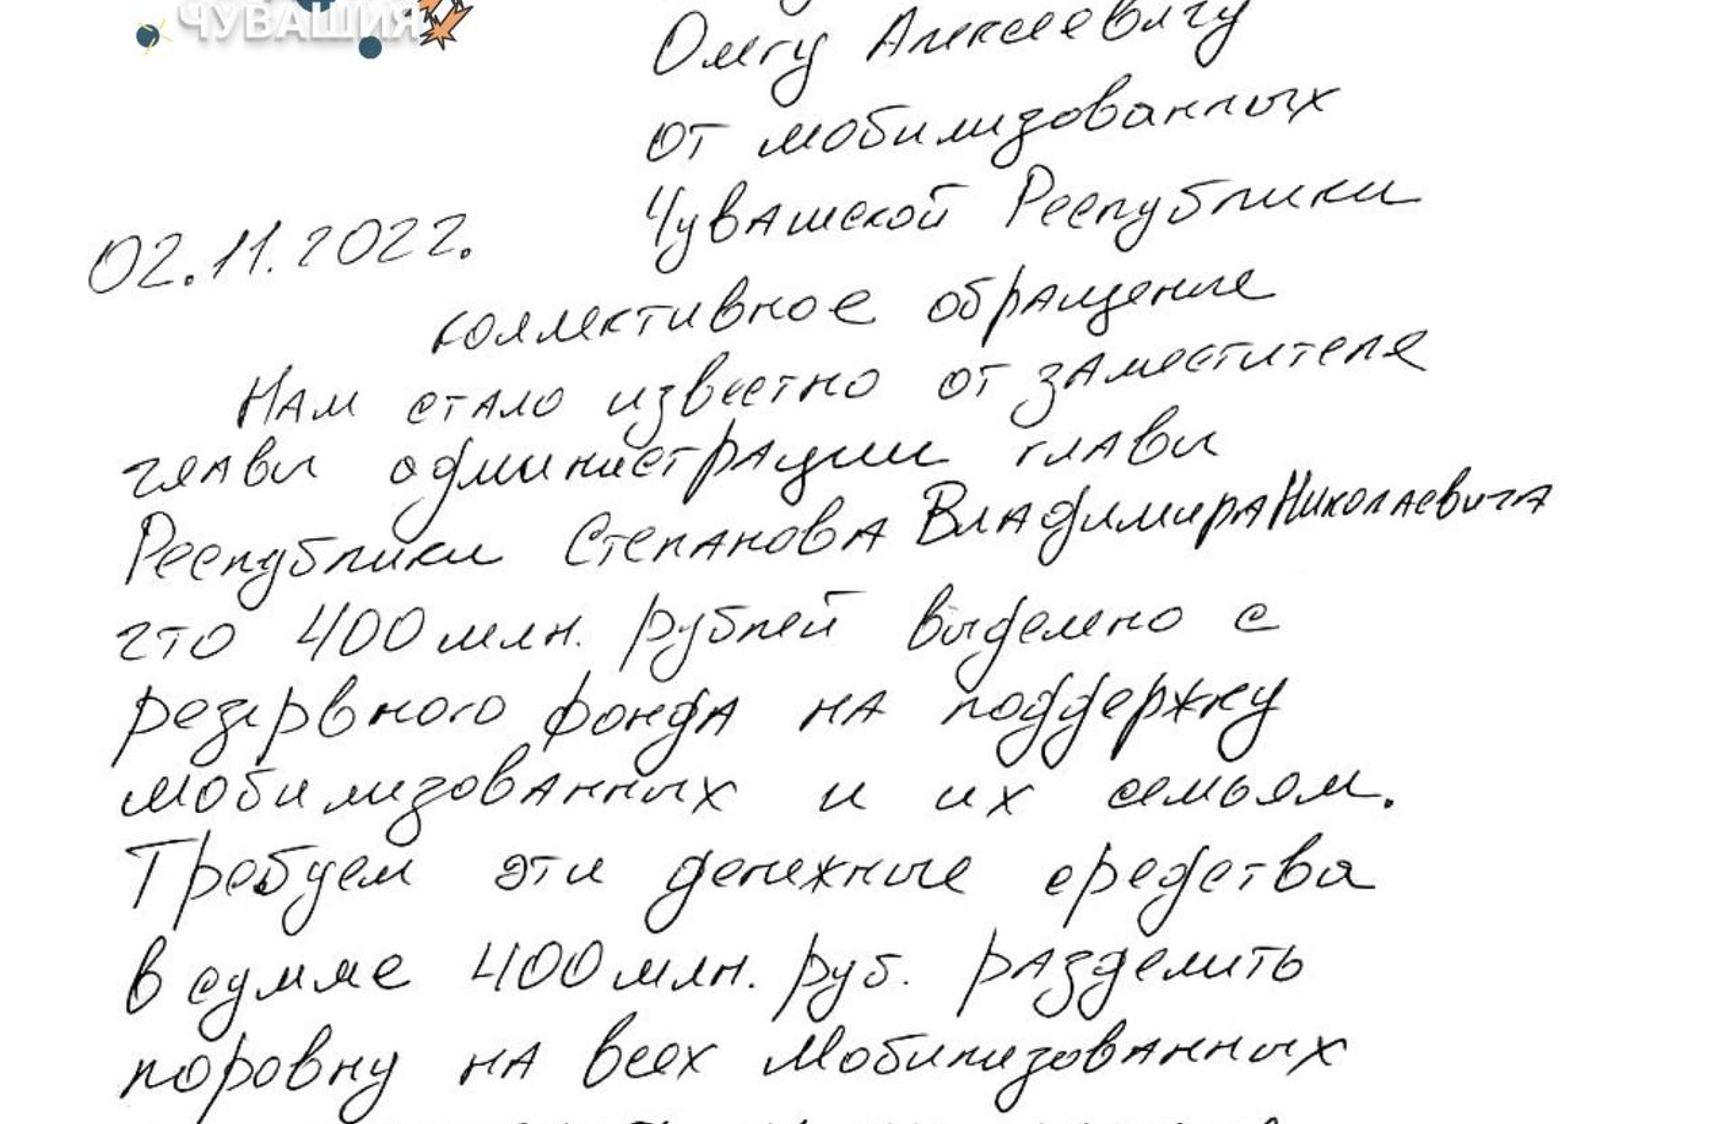 ЧУВАШИЯ
Олегу Алексеевичу
от мобилизованных
Чувашской Республики
02.11.2022г.
коллективное обращение
Нам стало известно от заместителя
главы администрации главы
Республики Степанова Владимира Николаевича
что 400 млн. рублей выделено с
резервного фонда на поддержку
мобилизованных и их семьям.
Требуем эти денежные средства
в сумме 400 млн. руб. разделить
поровну на всех мобилизованных